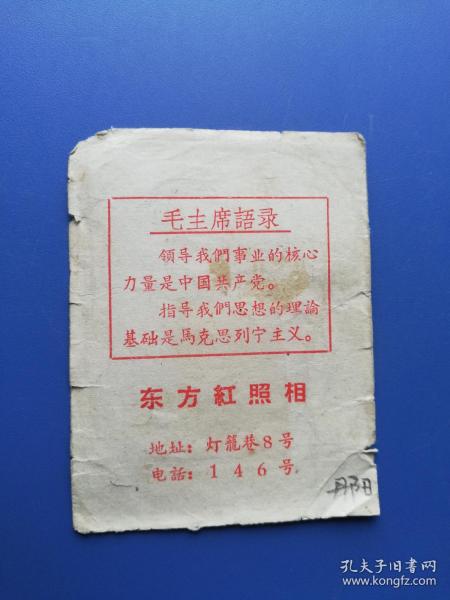 毛主席語录
领导我們事业的核心
力量是中国共产党。
指导我們思想的理論
基础是馬克思列宁主义。
东方紅照相
地址：灯籠巷8号
电話：146号
丹阳
孔夫子旧书网
www.kongfz.com